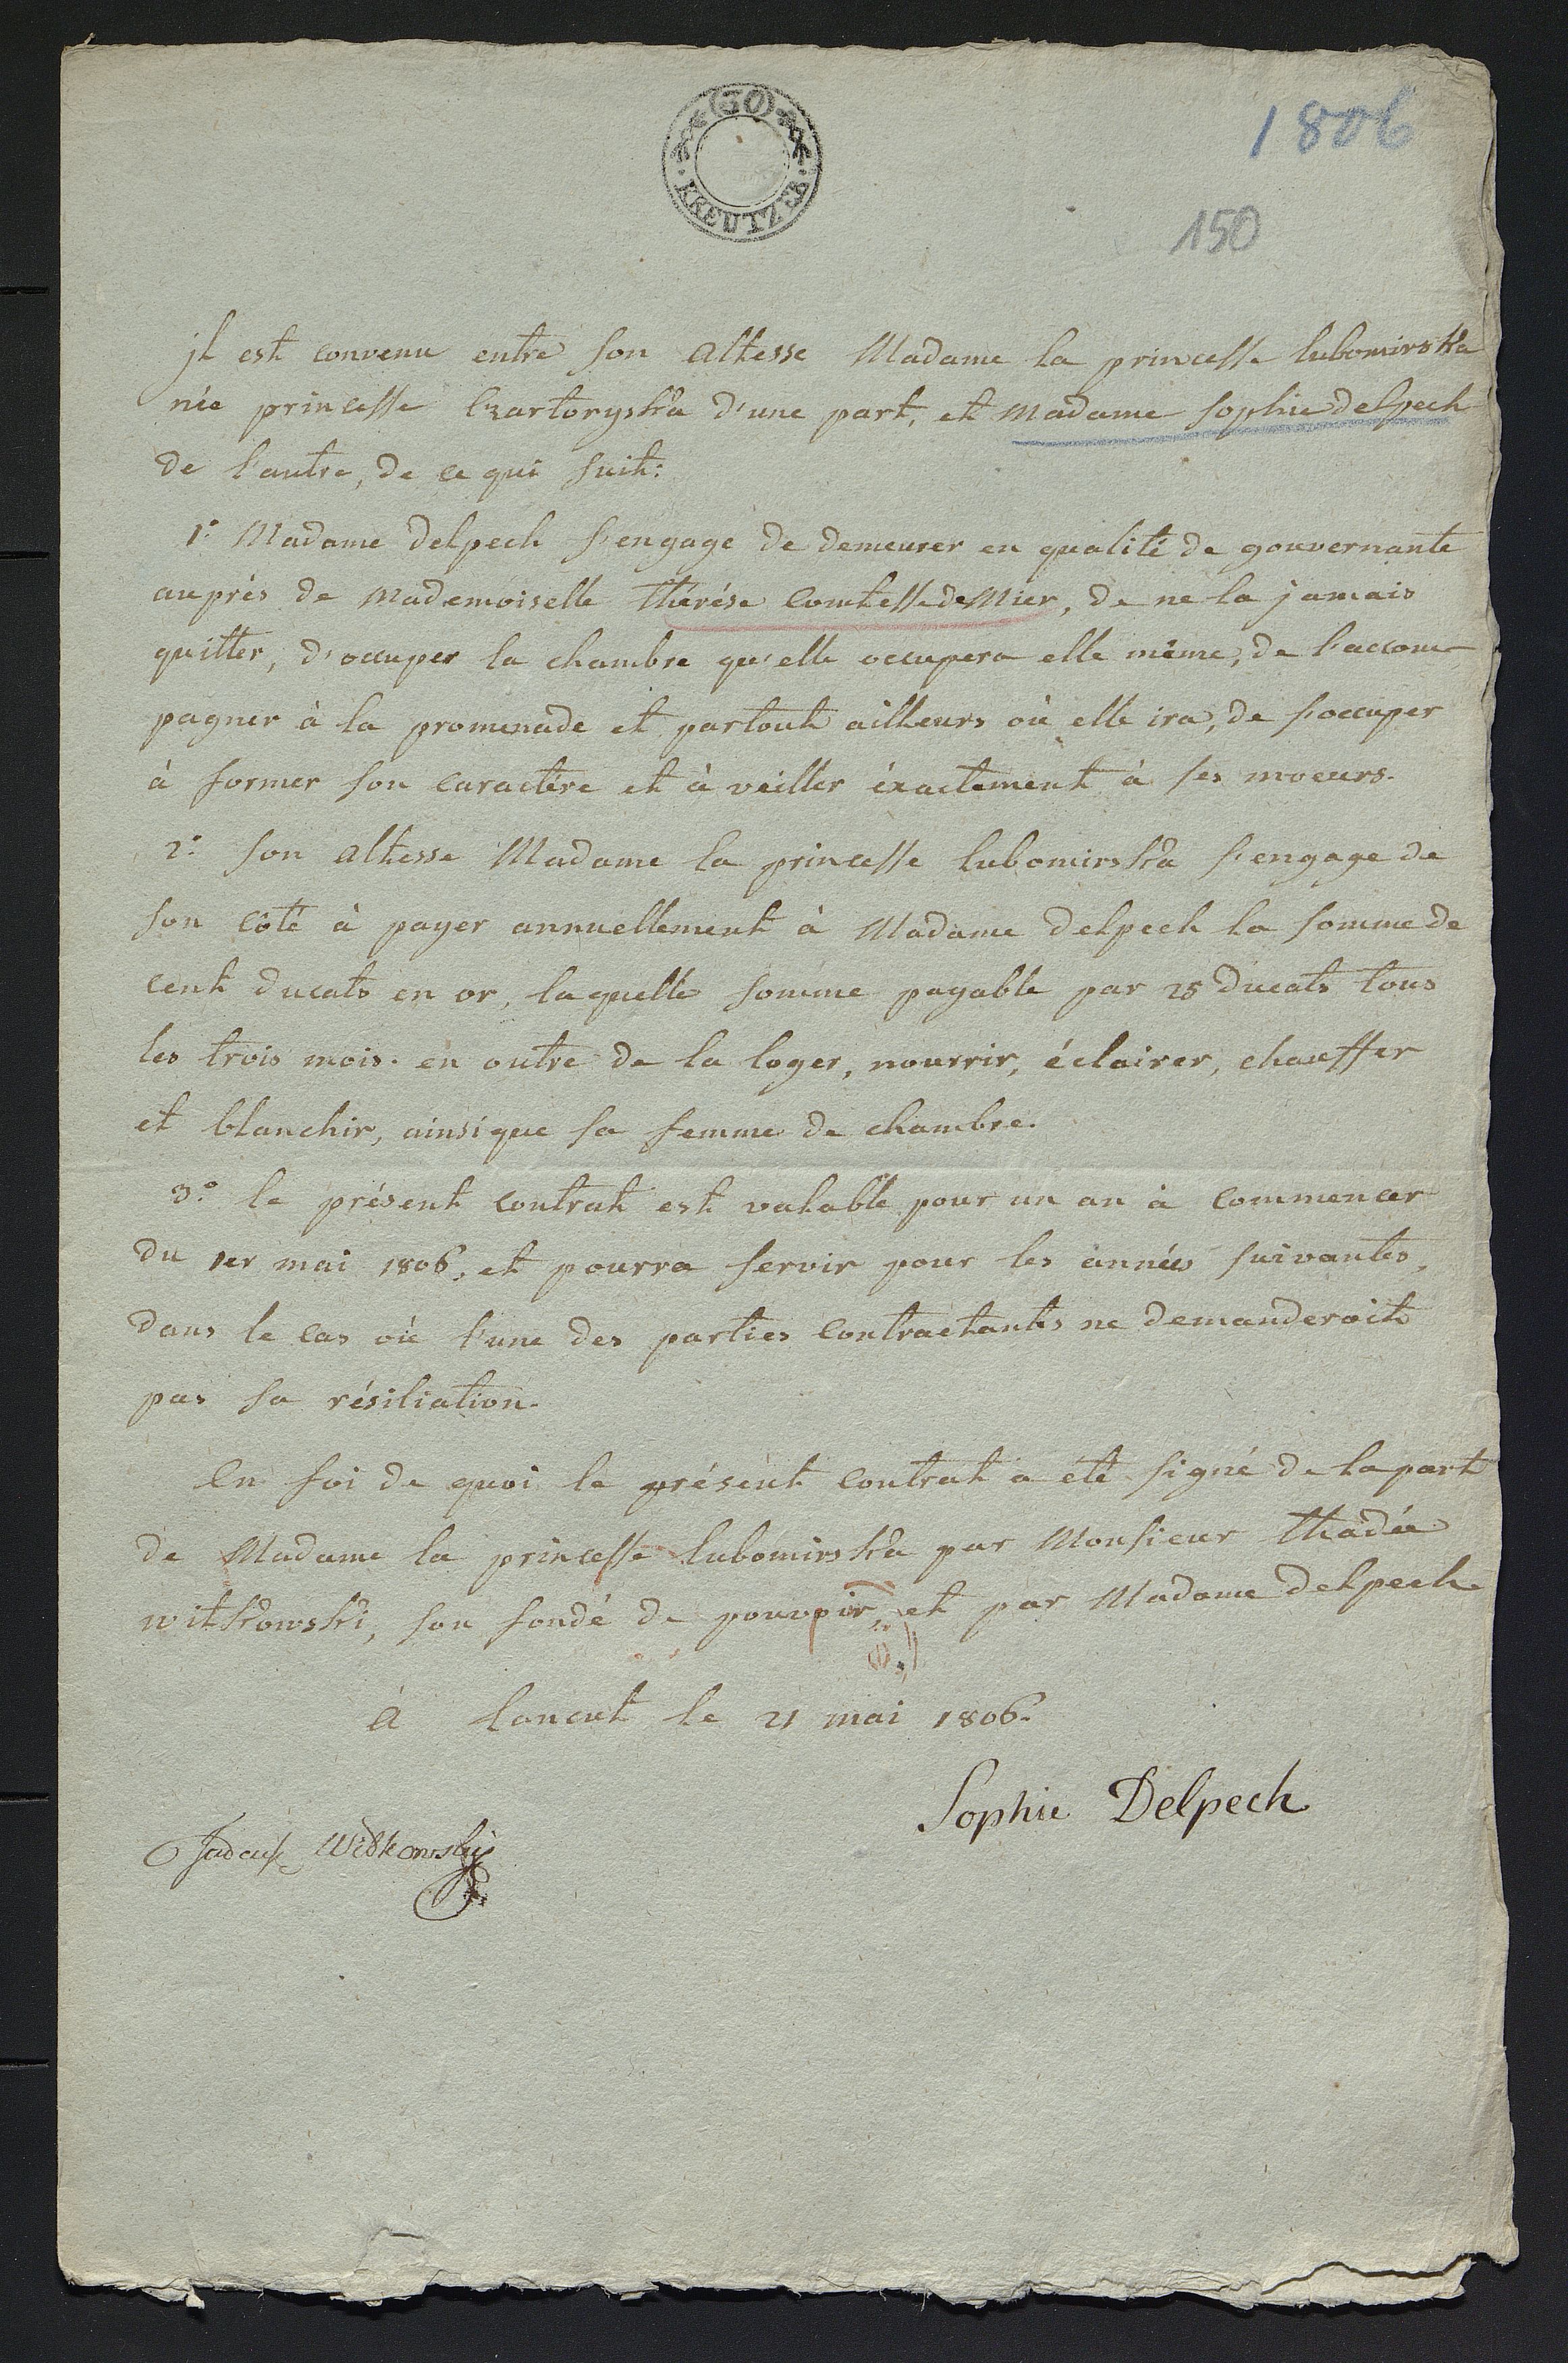 (30)
KREUTZER
1806
150
jl est convenu entre son altesse Madame la princesse lubomirska
née princesse Czartoryska d'une part, et Madame sophie delpech
de l'autre, de ce qui suit:
1º Madame Delpech s'engage de demeurer en qualité de gouvernante
auprés de Mademoiselle thérése Comtesse de Mier, de ne la jamais
quitter, d'occuper la chambre qu'elle occupera elle même, de l'accom-
pagner à la promenade et partout ailleurs où elle ira, de s'occuper
à former son caractére et à veiller éxactement à ses moeurs.
2º son altesse Madame la princesse lubomirska s'engage de
son côté à payer annuellement à Madame delpech la somme de
cent ducats en or, laquelle somme payable par 25 ducats tous
les trois mois. en outre de la loger, nourrir, éclairer, chauffer
et blanchir, ainsi que sa femme de chambre.
3º le présent contrat est valable pour un an à commencer
du 1er mai 1806, et pourra servir pour les années suivantes,
dans le cas où l'une des parties contractantes ne demanderoit
pas sa résiliation.
En foi de quoi le présent contrat a été signé de la part
de Madame la princesse lubomirska par Monsieur thadée
witkowski, son fondé de pouvoir, et par Madame delpech
à lancut le 21 mai 1806.
Sophie Delpech
Tadeusz Witkowski